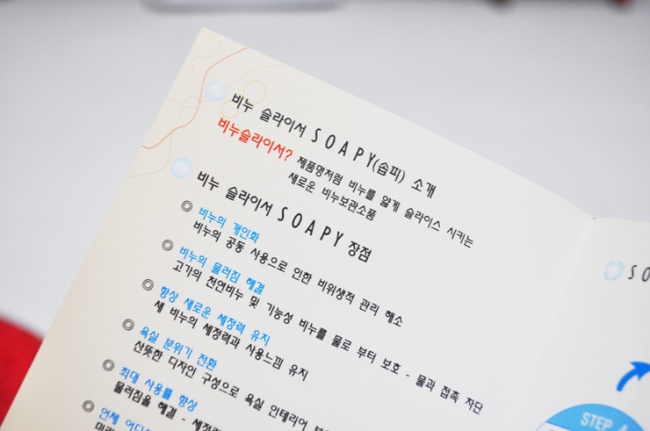 비누 슬라이서 SOAPY(솝피) 소개
비누슬라이서? 제품명처럼 비누를 얇게 슬라이스 시키는
새로운 비누보관소품
비누 슬라이서 SOAPY 장점
◎ 비누의 개인화
비누의 공동 사용으로 인한 비위생적 관리 해소
◎ 비누의 물러짐 해결
고가의 천연비누 및 기능성 비누를 물로 부터 보호 - 물과 접촉 차단
◎ 항상 새로운 세정력 유지
새 비누의 세정력과 사용느낌 유지
◎ 욕실 분위기 전환
산뜻한 디자인 구성으로 욕실 인테리어
◎ 최대 사용률 향상
물러짐을 해결 -
◎ 언제
SO
STEP